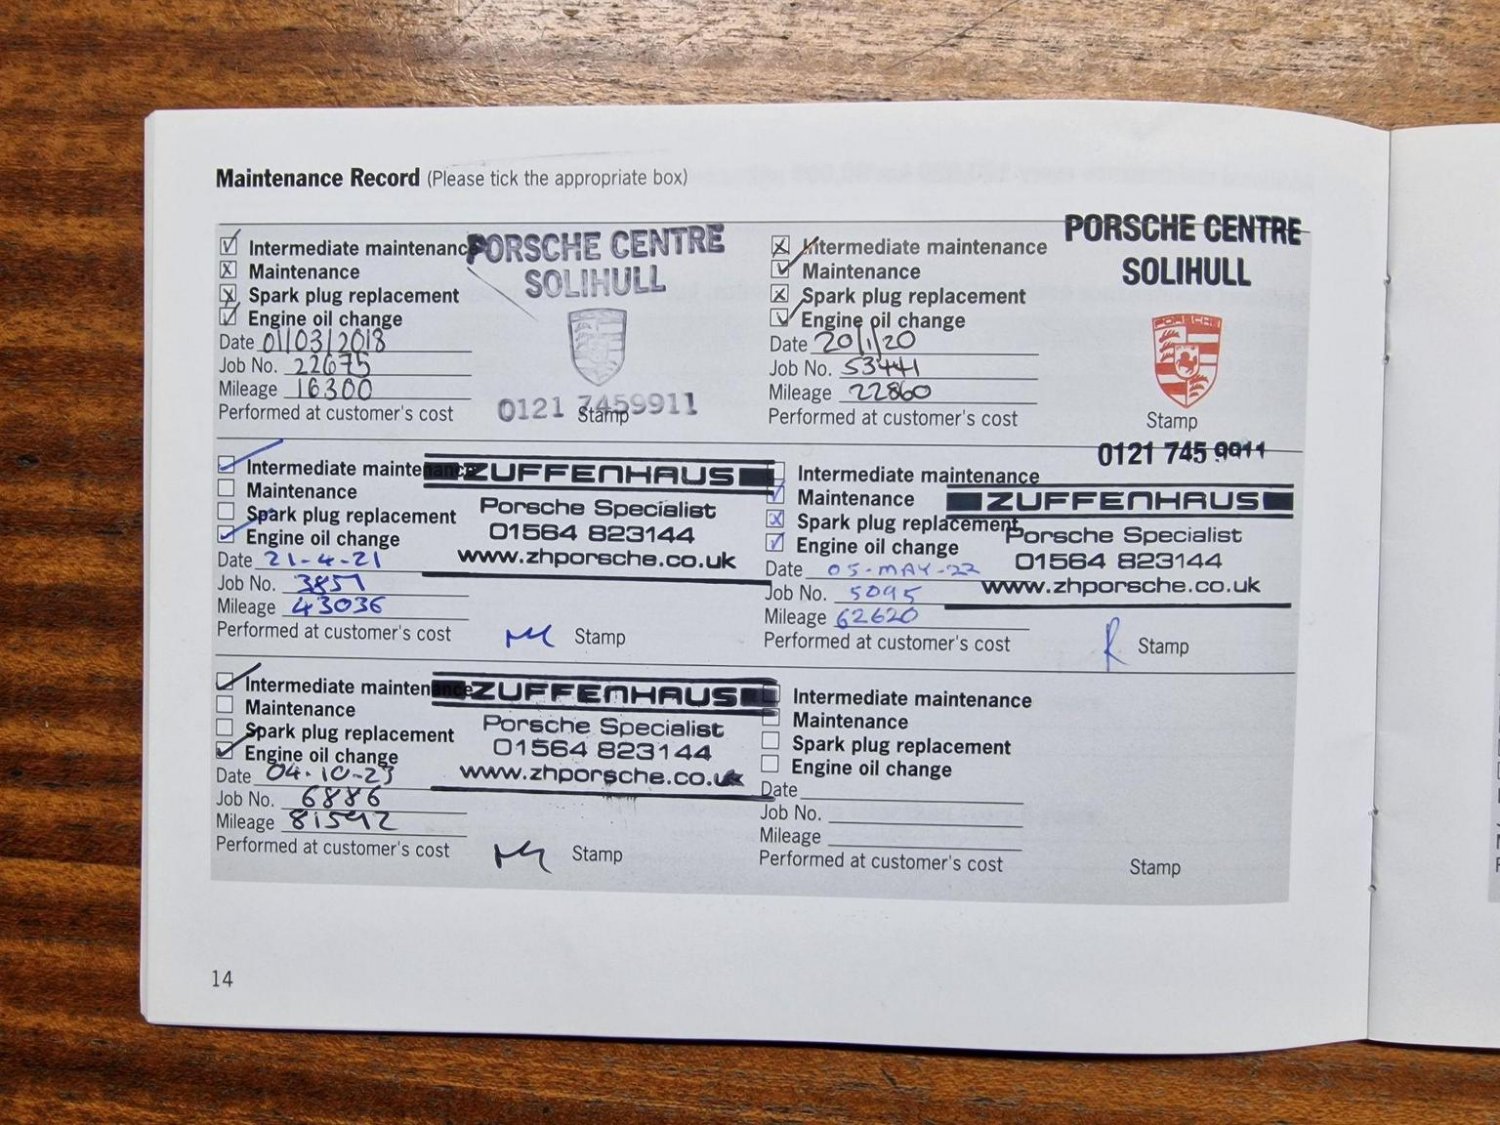 Maintenance Record (Please tick the appropriate box)
Intermediate maintenance
Maintenance
Spark plug replacement
Engine oil change
Date 01/03/2018
Job No. 22675
Mileage 16300
Performed at customer's cost
PORSCHE CENTRE
SOLIHULL
0121 7459911
Stamp
Intermediate maintenance
Maintenance
Spark plug replacement
Engine oil change
Date 20/1/20
Job No. 53441
Mileage 22860
Performed at customer's cost
PORSCHE CENTRE
SOLIHULL
PORSCHE
Stamp
0121 745 9911
Intermediate maintenance
Maintenance
Spark plug replacement
Engine oil change
Date 21-4-21
Job No. 3851
Mileage 43036
Performed at customer's cost
ZUFFENHAUS
Porsche Specialist
01564 823144
www.zhporsche.co.uk
Stamp
Intermediate maintenance
Maintenance
Spark plug replacement
Engine oil change
Date 05-MAY-22
Job No. 5095
Mileage 62620
Performed at customer's cost
ZUFFENHAUS
Porsche Specialist
01564 823144
www.zhporsche.co.uk
Stamp
Intermediate maintenance
Maintenance
Spark plug replacement
Engine oil change
Date 04.10-23
Job No. 6886
Mileage 81592
Performed at customer's cost
ZUFFENHAUS
Porsche Specialist
01564 823144
www.zhporsche.co.uk
Stamp
Intermediate maintenance
Maintenance
Spark plug replacement
Engine oil change
Date
Job No.
Mileage
Performed at customer's cost
Stamp
14